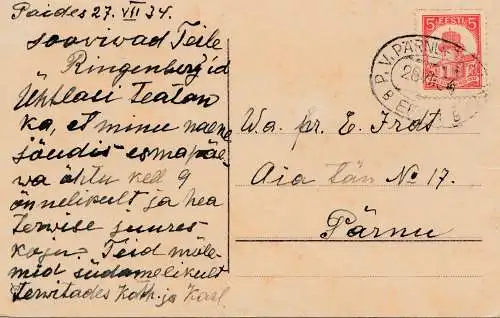 Paides 27. VII 34.
soovivad Teile
Ringenberg'id
Ühtlasi teatan
ka, et minu naene
jõudis esmapäe-
wa õhtu kell 9
õnnelikult ja hea
terwise juures
koju. Teid mõle-
mid südamelikult
terwitades Kath. ja Karl.
5 EESTI 5
P. V. PÄRNU
EESTI
Wa. pr. E. Frdt
Aia tän No 17.
Pärnu